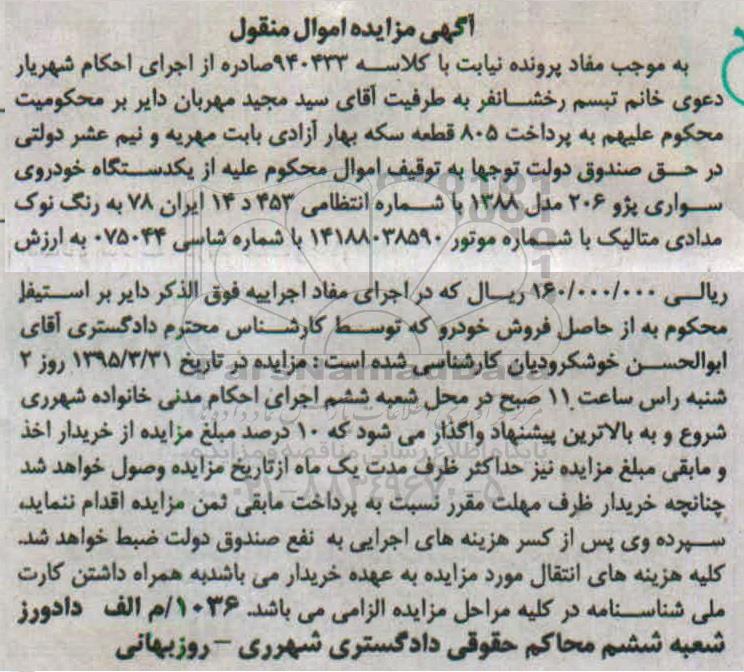 آگهی مزایده اموال منقول
به موجب مفاد پرونده نیابت با کلاسه ۹۴۰۴۳۳صادره از اجرای احکام شهریار
دعوی خانم تبسم رخشانفر به طرفیت آقای سید مجید مهربان دایر بر محکومیت
محکوم علیهم به پرداخت ۸۰۵ قطعه سکه بهار آزادی بابت مهریه و نیم عشر دولتی
در حق صندوق دولت توجها به توقیف اموال محکوم علیه از یکدستگاه خودروی
سواری پژو ۲۰۶ مدل ۱۳۸۸ با شماره انتظامی ۴۵۳ د ۱۴ ایران ۷۸ به رنگ نوک
مدادی متالیک با شماره موتور ۱۴۱۸۸۰۳۸۵۹۰ با شماره شاسی ۰۷۵۰۴۴ به ارزش
ریالی ۱۶۰/۰۰۰/۰۰۰ ریال که در اجرای مفاد اجراییه فوق الذکر دایر بر استیفا
محکوم به از حاصل فروش خودرو که توسط کارشناس محترم دادگستری آقای
ابوالحسن خوشکرودیان کارشناسی شده است : مزایده در تاریخ ۱۳۹۵/۳/۳۱ روز ۲
شنبه راس ساعت ۱۱ صبح در محل شعبه ششم اجرای احکام مدنی خانواده شهرری
شروع و به بالاترین پیشنهاد واگذار می شود که ۱۰ درصد مبلغ مزایده از خریدار اخذ
و مابقی مبلغ مزایده نیز حداکثر ظرف مدت یک ماه ازتاریخ مزایده وصول خواهد شد
چنانچه خریدار ظرف مهلت مقرر نسبت به پرداخت مابقی ثمن مزایده اقدام ننماید،
سپرده وی پس از کسر هزینه های اجرایی به نفع صندوق دولت ضبط خواهد شد.
کلیه هزینه های انتقال مورد مزایده به عهده خریدار می باشدبه همراه داشتن کارت
ملی شناسنامه در کلیه مراحل مزایده الزامی می باشد. ۱۰۳۶/م الف دادورز
شعبه ششم محاکم حقوقی دادگستری شهرری – روزبهانی
ParsNamadData
پایگاه اطلاع رسانی مناقصه و مزایده
۰۲۱-۸۸۳۴۹۶۷۰-۵